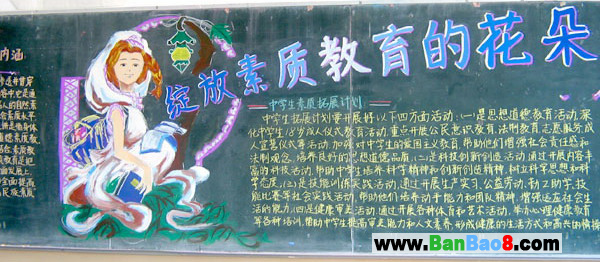 绽放素质教育的花朵
内涵
中学生素质拓展计划
中学生拓展计划要开展好以下四方面活动:(一)是思想道德教育活动,深
化中学生18岁成人仪式教育活动,重点开展公民意识教育,法制教育志愿服务,成
人宣誓仪式等活动,加强对中学生的爱国主义教育,帮助他们增强社会责任感和
法制观念,培养良好的思想道德品质,(二)是科技创新创造活动,通过开展内容丰
富的科技活动,帮助中学生培养科学精神和创新创造精神,树立科学思想和科
学态度,(三)是技能训练实践活动,通过开展生产实习,公益劳动,勤工助学,技
能比赛等社会实践活动,帮助他们培养动手能力和团队精神,增强适应社会生
活的能力,(四)是健康审美活动,通过开展各种体育和艺术活动,举办心理健康教育
等各种培训,帮助中学生提高审美能力和人文素养,形成健康的生活方式和高尚的情操
www.BanBao8.com